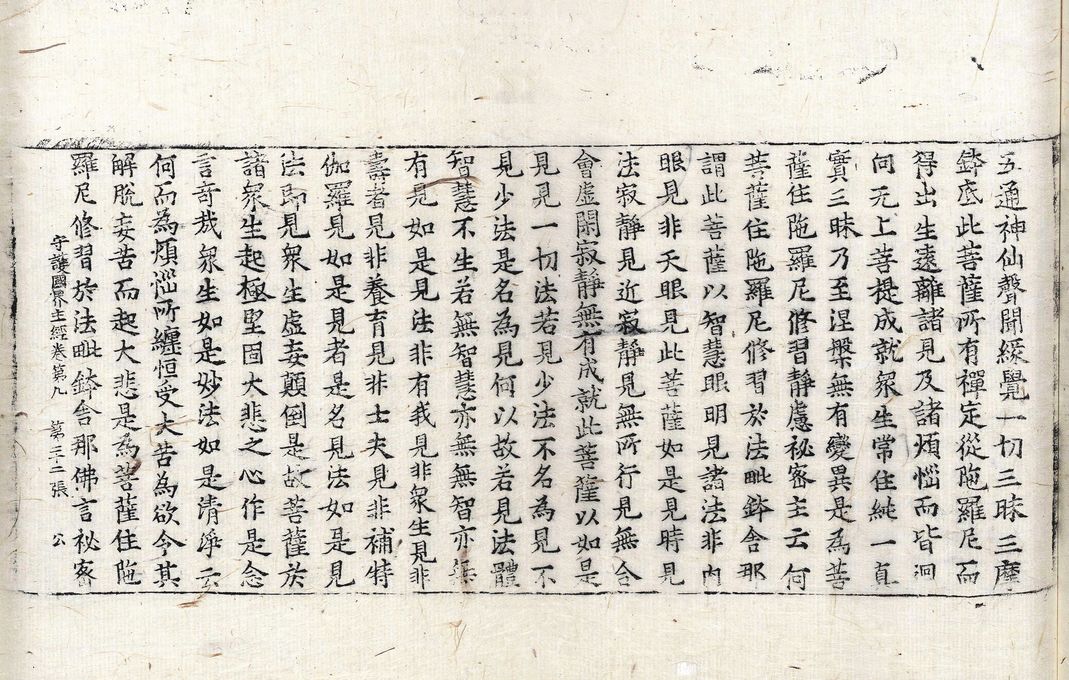 五通神仙聲聞緣覺一切三昧三摩
鉢底此菩薩所有禪定從陁羅尼而
得出生遠離諸見及諸煩惱而皆迴
向无上菩提成就衆生常住純一真
實三昧乃至涅槃無有變異是為菩
薩住陁羅尼修習靜慮祕密主云何
菩薩住陁羅尼修習於法毗鉢舍那
謂此菩薩以智慧眼明見諸法非肉
眼見非天眼見此菩薩如是見時見
法寂靜見近寂靜見無所行見無合
會虛閑寂靜無有成就此菩薩以如是
見見一切法若見少法不名為見不
見少法是名為見何以故若見法體
智慧不生若無智慧亦無無智亦無
有見如是見法非有我見非衆生見非
壽者見非養育見非士夫見非補特
伽羅見如是見者是名見法如是見
法即見衆生虛妄顛倒是故菩薩於
諸衆生起極堅固大悲之心作是念
言奇哉衆生如是妙法如是清淨云
何而為煩惱所纏恒受大苦為欲令其
解脫妄苦而起大悲是為菩薩住陁
羅尼修習於法毗鉢舍那佛言祕密
守護國界主經卷第九 第三二張 公